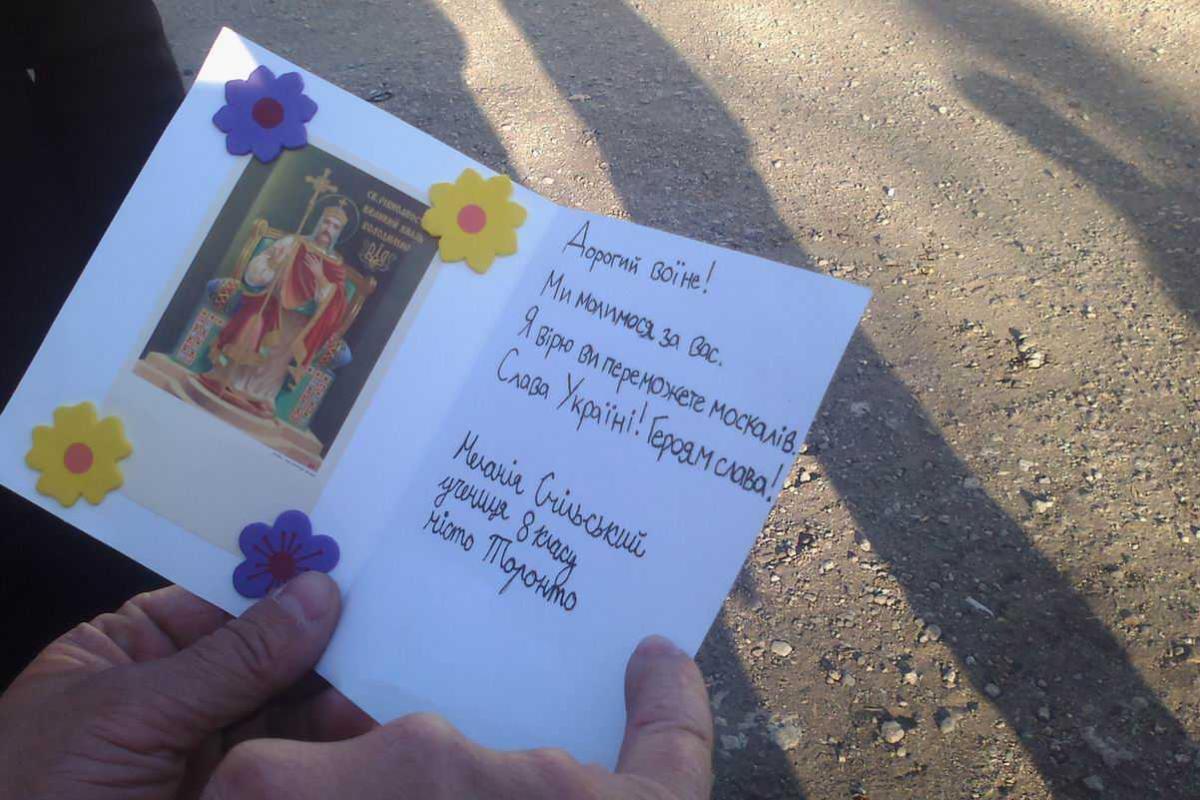 СВ. РІВНОАПОСТ
ВЕЛИКИЙ КНЯЗЬ
ВОЛОДИМИР
Дорогий воїне!
Ми молимося за вас.
Я вірю ви переможете москалів.
Слава Україні! Героям слава!
Меланія Смільський
учениця 8 класу
місто Торонто